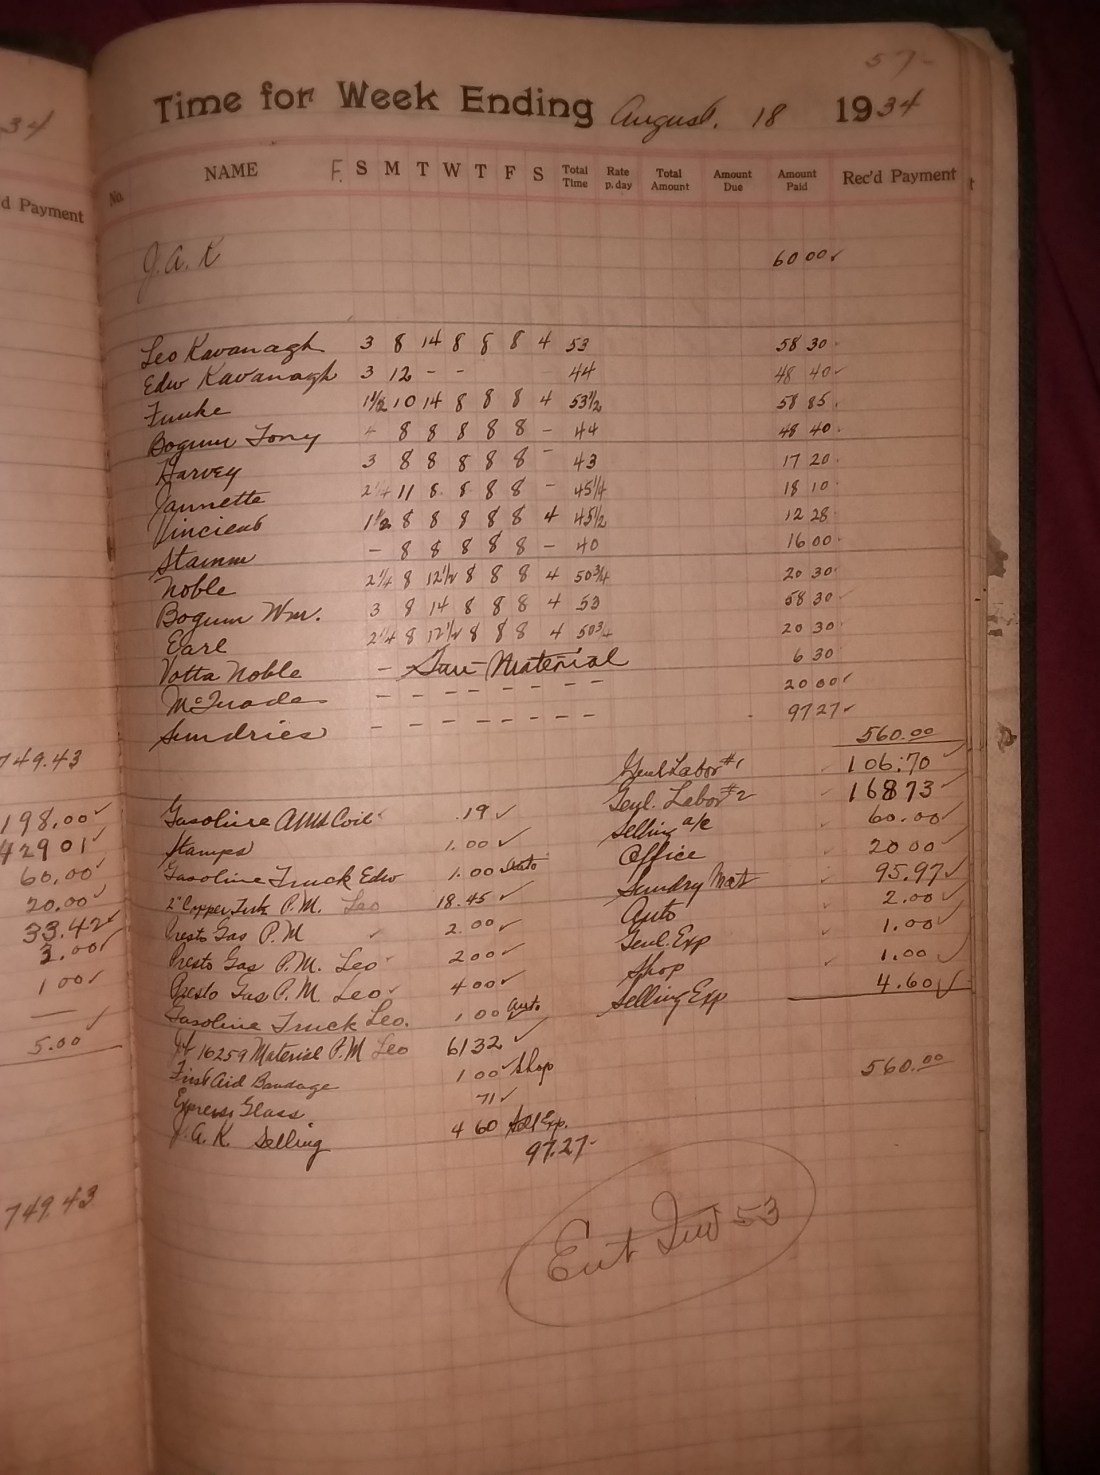 57-
Time for Week Ending August. 18 1934
No. NAME F. S M T W T F S Total Time Rate p. day Total Amount Amount Due Amount Paid Rec'd Payment
J. A. K 60 00 ✓
Leo Kavanagh 3 8 14 8 8 8 4 53 58 30
Edw Kavanagh 3 12 - - 44 48 40 ✓
Funke 1½ 10 14 8 8 8 4 53½ 58 85
Bogum Tony - 8 8 8 8 8 - 44 48 40
Harvey 3 8 8 8 8 8 - 43 17 20
Jannette 2¼ 11 8 8 8 8 - 45¼ 18 10
Vincient 1½ 8 8 8 8 8 4 45½ 12 28
Stamm - 8 8 8 8 8 - 40 16 00
Noble 2¼ 8 12½ 8 8 8 4 50¾ 20 30
Bogum Wm. 3 8 14 8 8 8 4 53 58 30 ✓
Earl 2¼ 8 12½ 8 8 8 4 50¾ 20 30
Votta Noble - Material 6 30
McQuade - - - - - - - - 20 00 ✓
Sundries - - - - - - - - 97 27 ✓
560.00
Genl Labor #1 106.70 ✓
Genl. Labor #2 168 73 ✓
Gasoline and Coil .19 ✓ Selling a/c 60.00 ✓
Stamps 1.00 ✓ Office 20 00 ✓
Gasoline Truck Edw 1.00 Auto Sundry Mat 95.97 ✓
2" Copper P.M. Leo 18.45 ✓ Auto 2.00 ✓
Presto Gas P.M ✓ 2.00 ✓ Genl. Exp 1.00 ✓
Presto Gas P.M. Leo 2 00 ✓ Shop 1.00 ✓
Presto Gas P.M Leo ✓ 4 00 ✓ Selling Exp 4.60 ✓
Gasoline Truck Leo. 1 00 Auto
16259 Material P.M Leo 61 32 ✓
First Aid Bandage 1 00 ✓ Shop 560.00
Express Glass 71 ✓
J. A. K. Selling 4 60 Sell Exp.
97.27-
Ent 53
34
d Payment
749.43
198.00 ✓
429 01 ✓
60.00 ✓
20.00 ✓
33.42 ✓
1 00 ✓
5.00 ✓
749.43